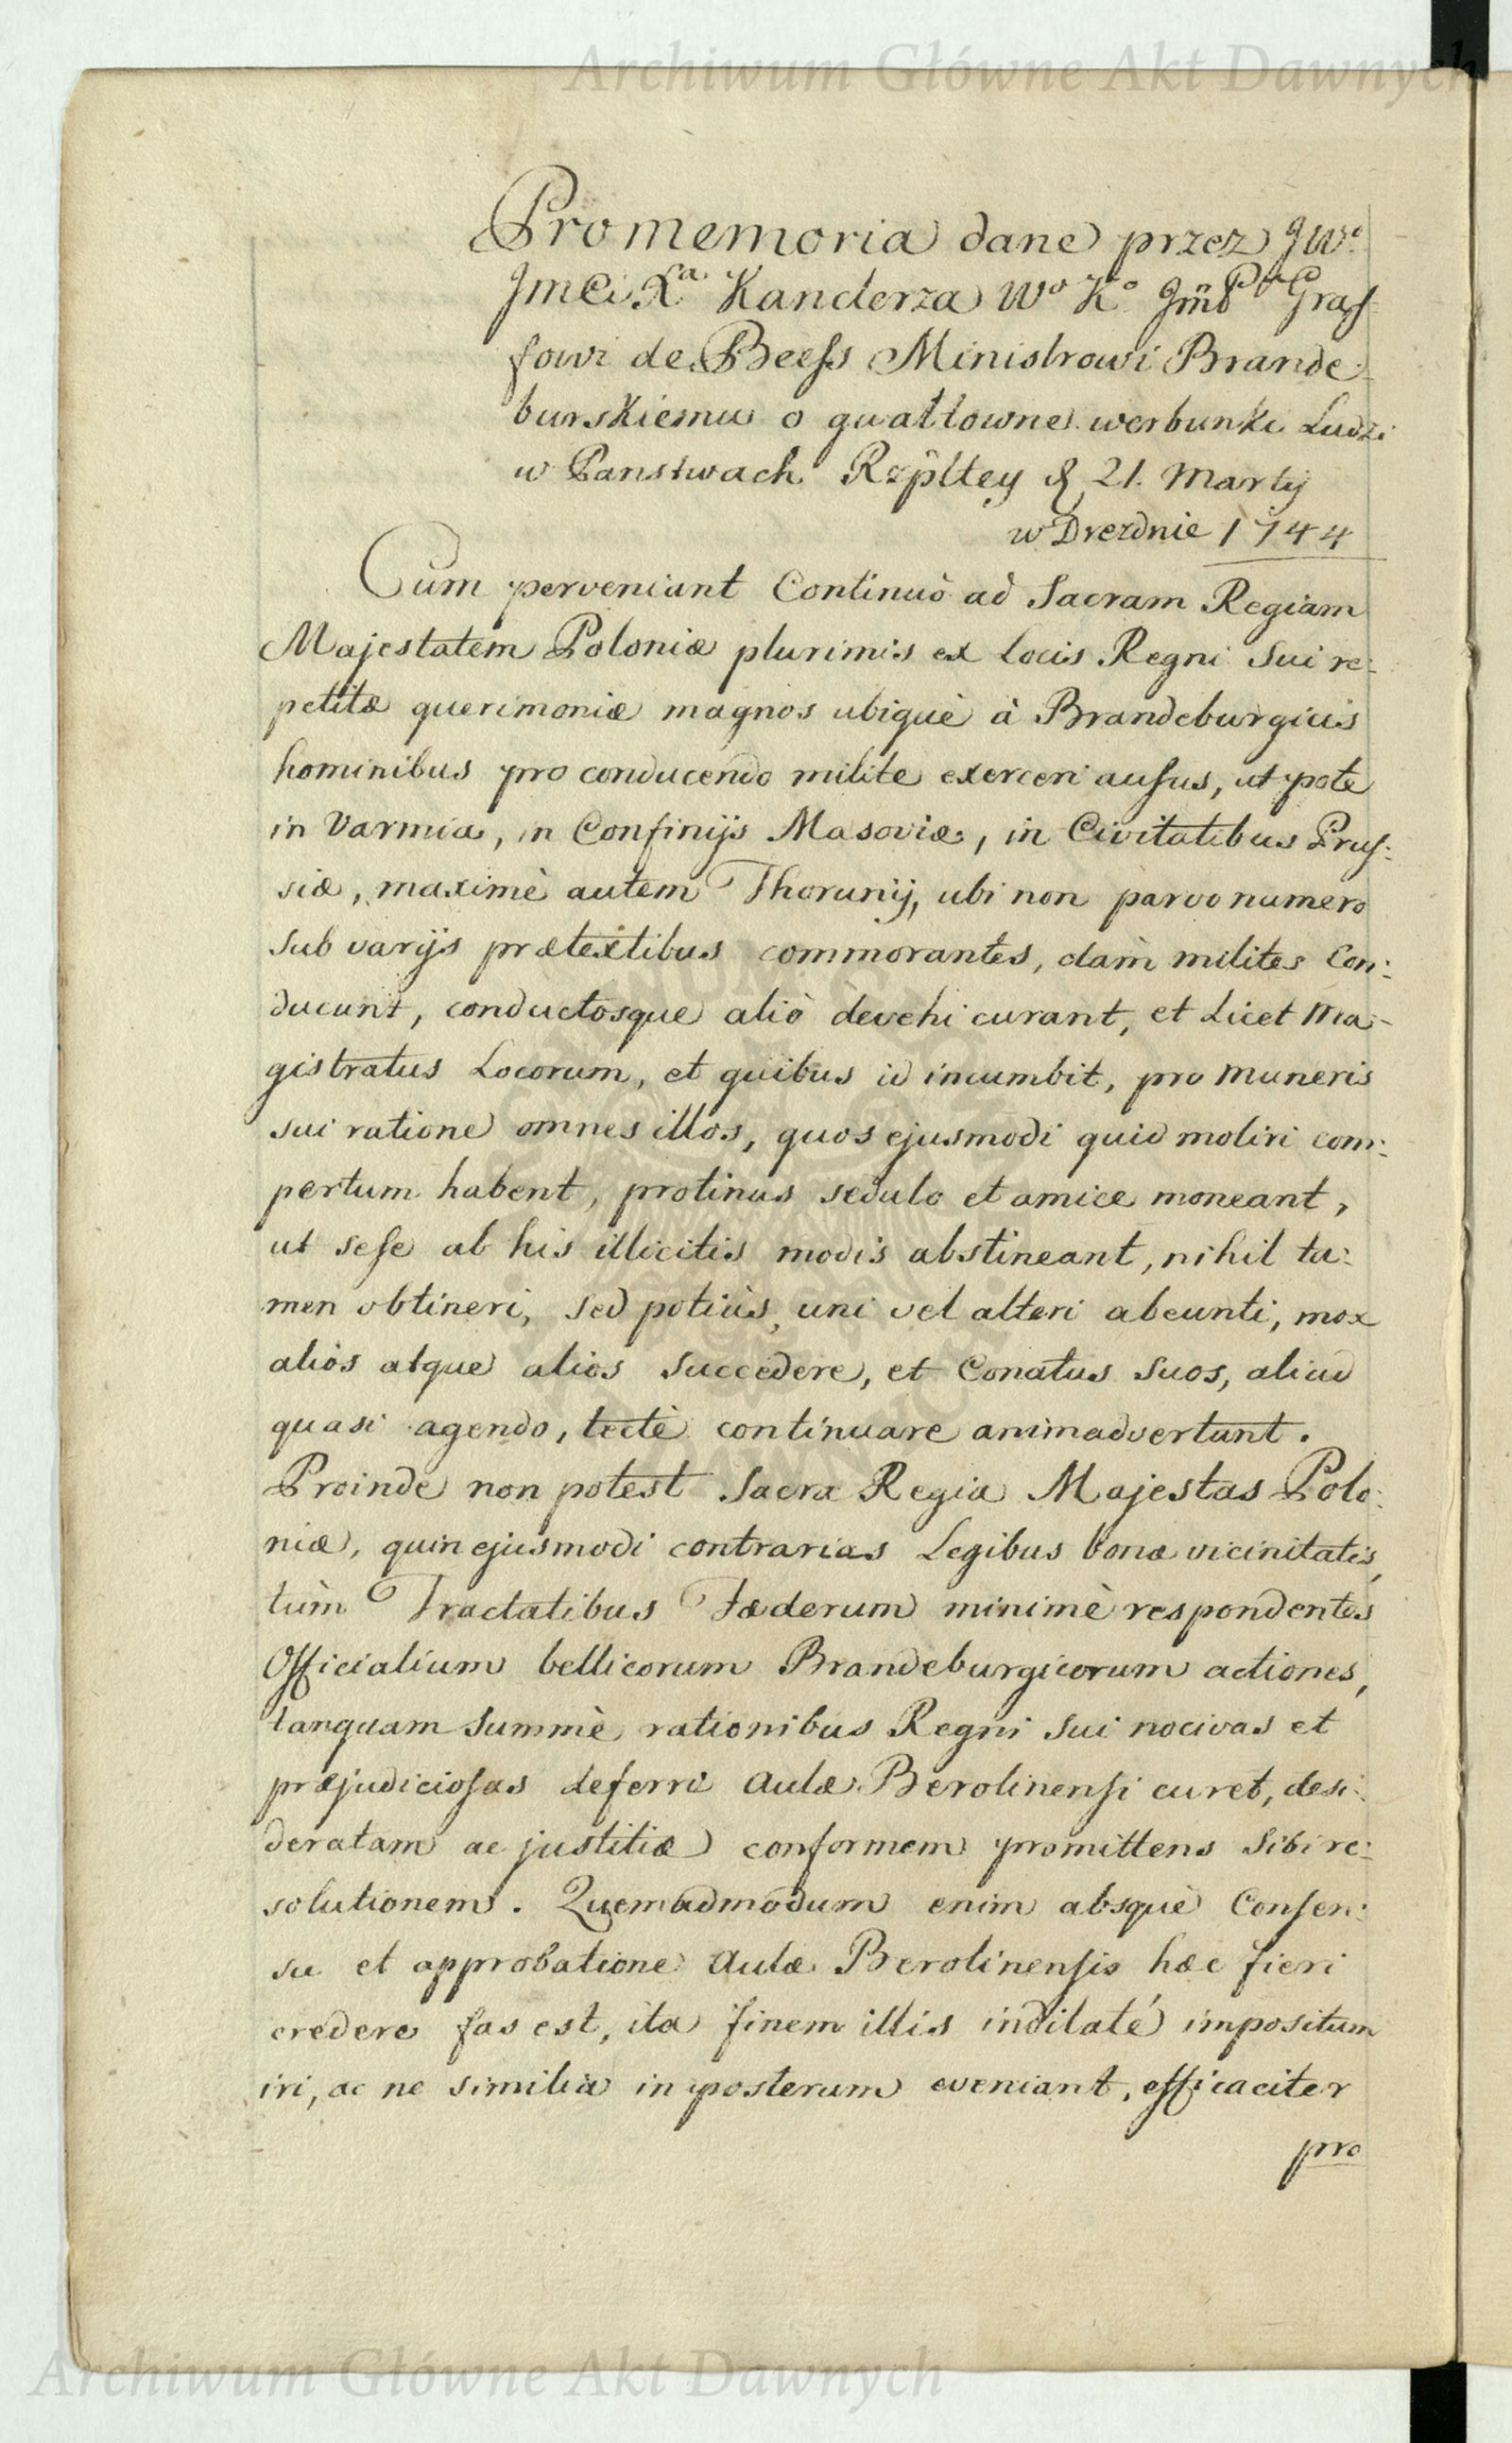 Archiwum Główne Akt Dawnych
Promemoria dane przez JWo
Jmci Xa Kanclerza Wo Ko Jmć Pu Graf
fowi de Beess Ministrowi Brande:
burskiemu o gwałtowne werbunki Ludzi
w Panstwach Rzpltey d 21. Martij
w Dreznie 1744
Cum perveniant Continuò ad Sacram Regiam
Majestatem Poloniæ plurimis ex Locis Regni Sui re:
petitæ querimoniæ magnos ubiquè à Brandeburgicis
hominibus pro conducendo milite exerceri ausus, ut pote
in Varmia, in Confinijs Masoviæ, in Civitatibus Prus:
siæ, maximè autem Thorunij, ubi non parvo numero
sub varijs prætextibus commorantes, clam milites Con:
ducunt, conductosque aliò devehi curant, et Licet Ma-
gistratus Locorum, et quibus id incumbit, pro Muneris
sui ratione omnes illos, quos ejusmodi quid moliri com:
pertum habent, protinus sedulo et amice moneant,
ut sese ab his illicitis modis abstineant, nihil ta:
men obtineri, sed potiùs, uni vel alteri abeunti, mox
aliòs atque alios succedere, et Conatus Suos, aliud
quasi agendo, tectè continuare animadvertunt.
Proinde non potest Sacra Regia Majestas Polo:
niæ, quin ejusmodi contrarias Legibus bonæ vicinitatis,
tùm Tractatibus Fæderum minimè respondentes
Officialium bellicorum Brandeburgicorum actiones,
tanquam Summè rationibus Regni Sui nocivas et
præjudiciosas deferri Aulæ Berolinensi curet, desi:
deratam ac justitiæ conformem promittens Sibi re:
solutionem. Quemadmodum enim absquè Consen:
su et approbatione Aulæ Berolinensis hæc fieri
credere fas est, ita finem illis indilaté impositum
iri, ac ne similia in posterum eveniant, efficaciter
pro
Archiwum Główne Akt Dawnych